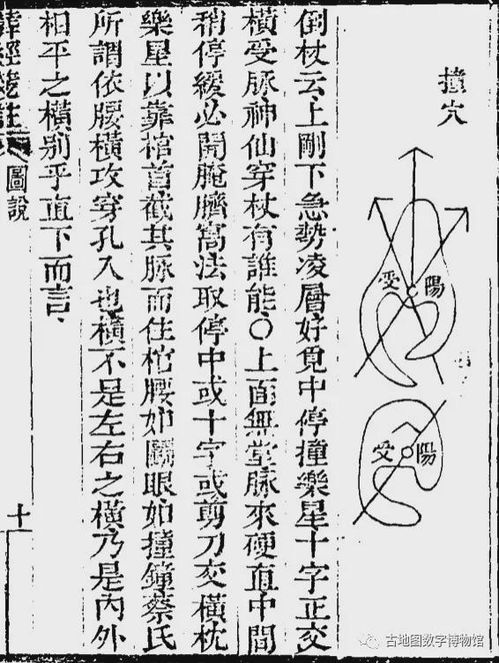 撞穴
受
陽
受
陽
倒杖云上剛下急勢凌層好覓中停撞樂星十字正交
橫受脉神仙穿杖有誰能〇上面無堂脉來硬直中間
稍停緩必開腌臍窩法取停中或十字或剪刀交橫枕
樂星以靠棺首截其脉而住棺腰如鬬眼如撞鐘蔡氏
所謂依腰橫攻穿孔入也橫不是左右之橫乃是內外
相平之橫别乎直下而言
圖說
十
古地图数字博物馆